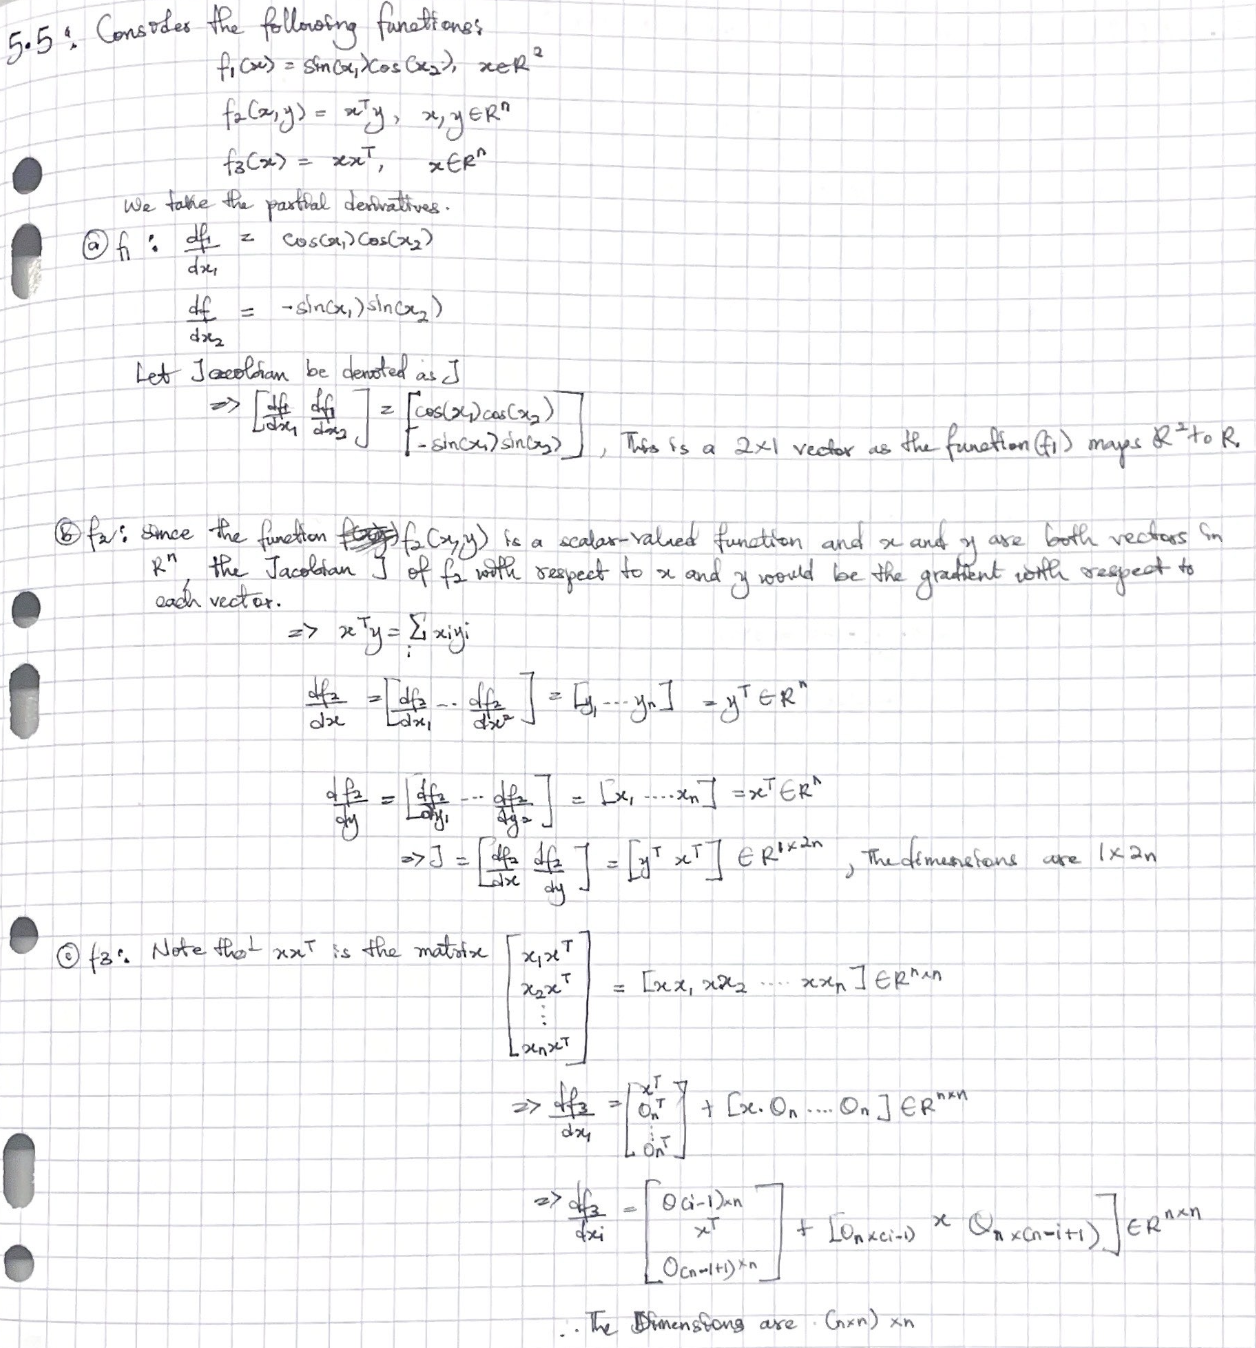 5.5: Consider the following functions:
f₁(x) = sin(x₁)cos(x₂), x∈R²
f₂(x,y) = xᵀy, x,y ∈Rⁿ
f₃(x) = xxᵀ, x∈Rⁿ
We take the partial derivatives.
ⓐ f₁: df₁/dx₁ = cos(x₁)cos(x₂)
df/dx₂ = -sin(x₁)sin(x₂)
Let Jacobian be denoted as J
=> [df₁/dx₁ df₁/dx₂] = [cos(x₁)cos(x₂)
-sin(x₁)sin(x₂)], This is a 2x1 vector as the function(f₁) maps R² to R.
ⓑ f₂: since the function f₂(x,y) is a scalar-valued function and x and y are both vectors in
Rⁿ, the Jacobian J of f₂ with respect to x and y would be the gradient with respect to
each vector.
=> xᵀy = Σᵢ xᵢyᵢ
df₂/dx = [df₂/dx₁ ... df₂/dx²] = [y₁ ... yₙ] = yᵀ ∈ Rⁿ
df₂/dy = [df₂/dy₁ ... df₂/dy₂] = [x₁ .... xₙ] = xᵀ ∈ Rⁿ
=> J = [df₂/dx df₂/dy] = [yᵀ xᵀ] ∈ R¹ˣ²ⁿ, The dimensions are 1x2n
ⓒ f₃: Note that xxᵀ is the matrix [x₁xᵀ
x₂xᵀ
⋮
xₙxᵀ] = [xx₁ xx₂ .... xxₙ] ∈ Rⁿˣⁿ
=> df₃/dx₁ = [xᵀ
0ₙᵀ
⋮
0ₙᵀ] + [x. 0ₙ .... 0ₙ] ∈ Rⁿˣⁿ
=> df₃/dxᵢ = [0(i-1)xn
xᵀ
0(n-i+1)xn] + [0nx(i-1) x 0nx(n-i+1)] ∈ Rⁿˣⁿ
∴ The Dimensions are (nxn) xn